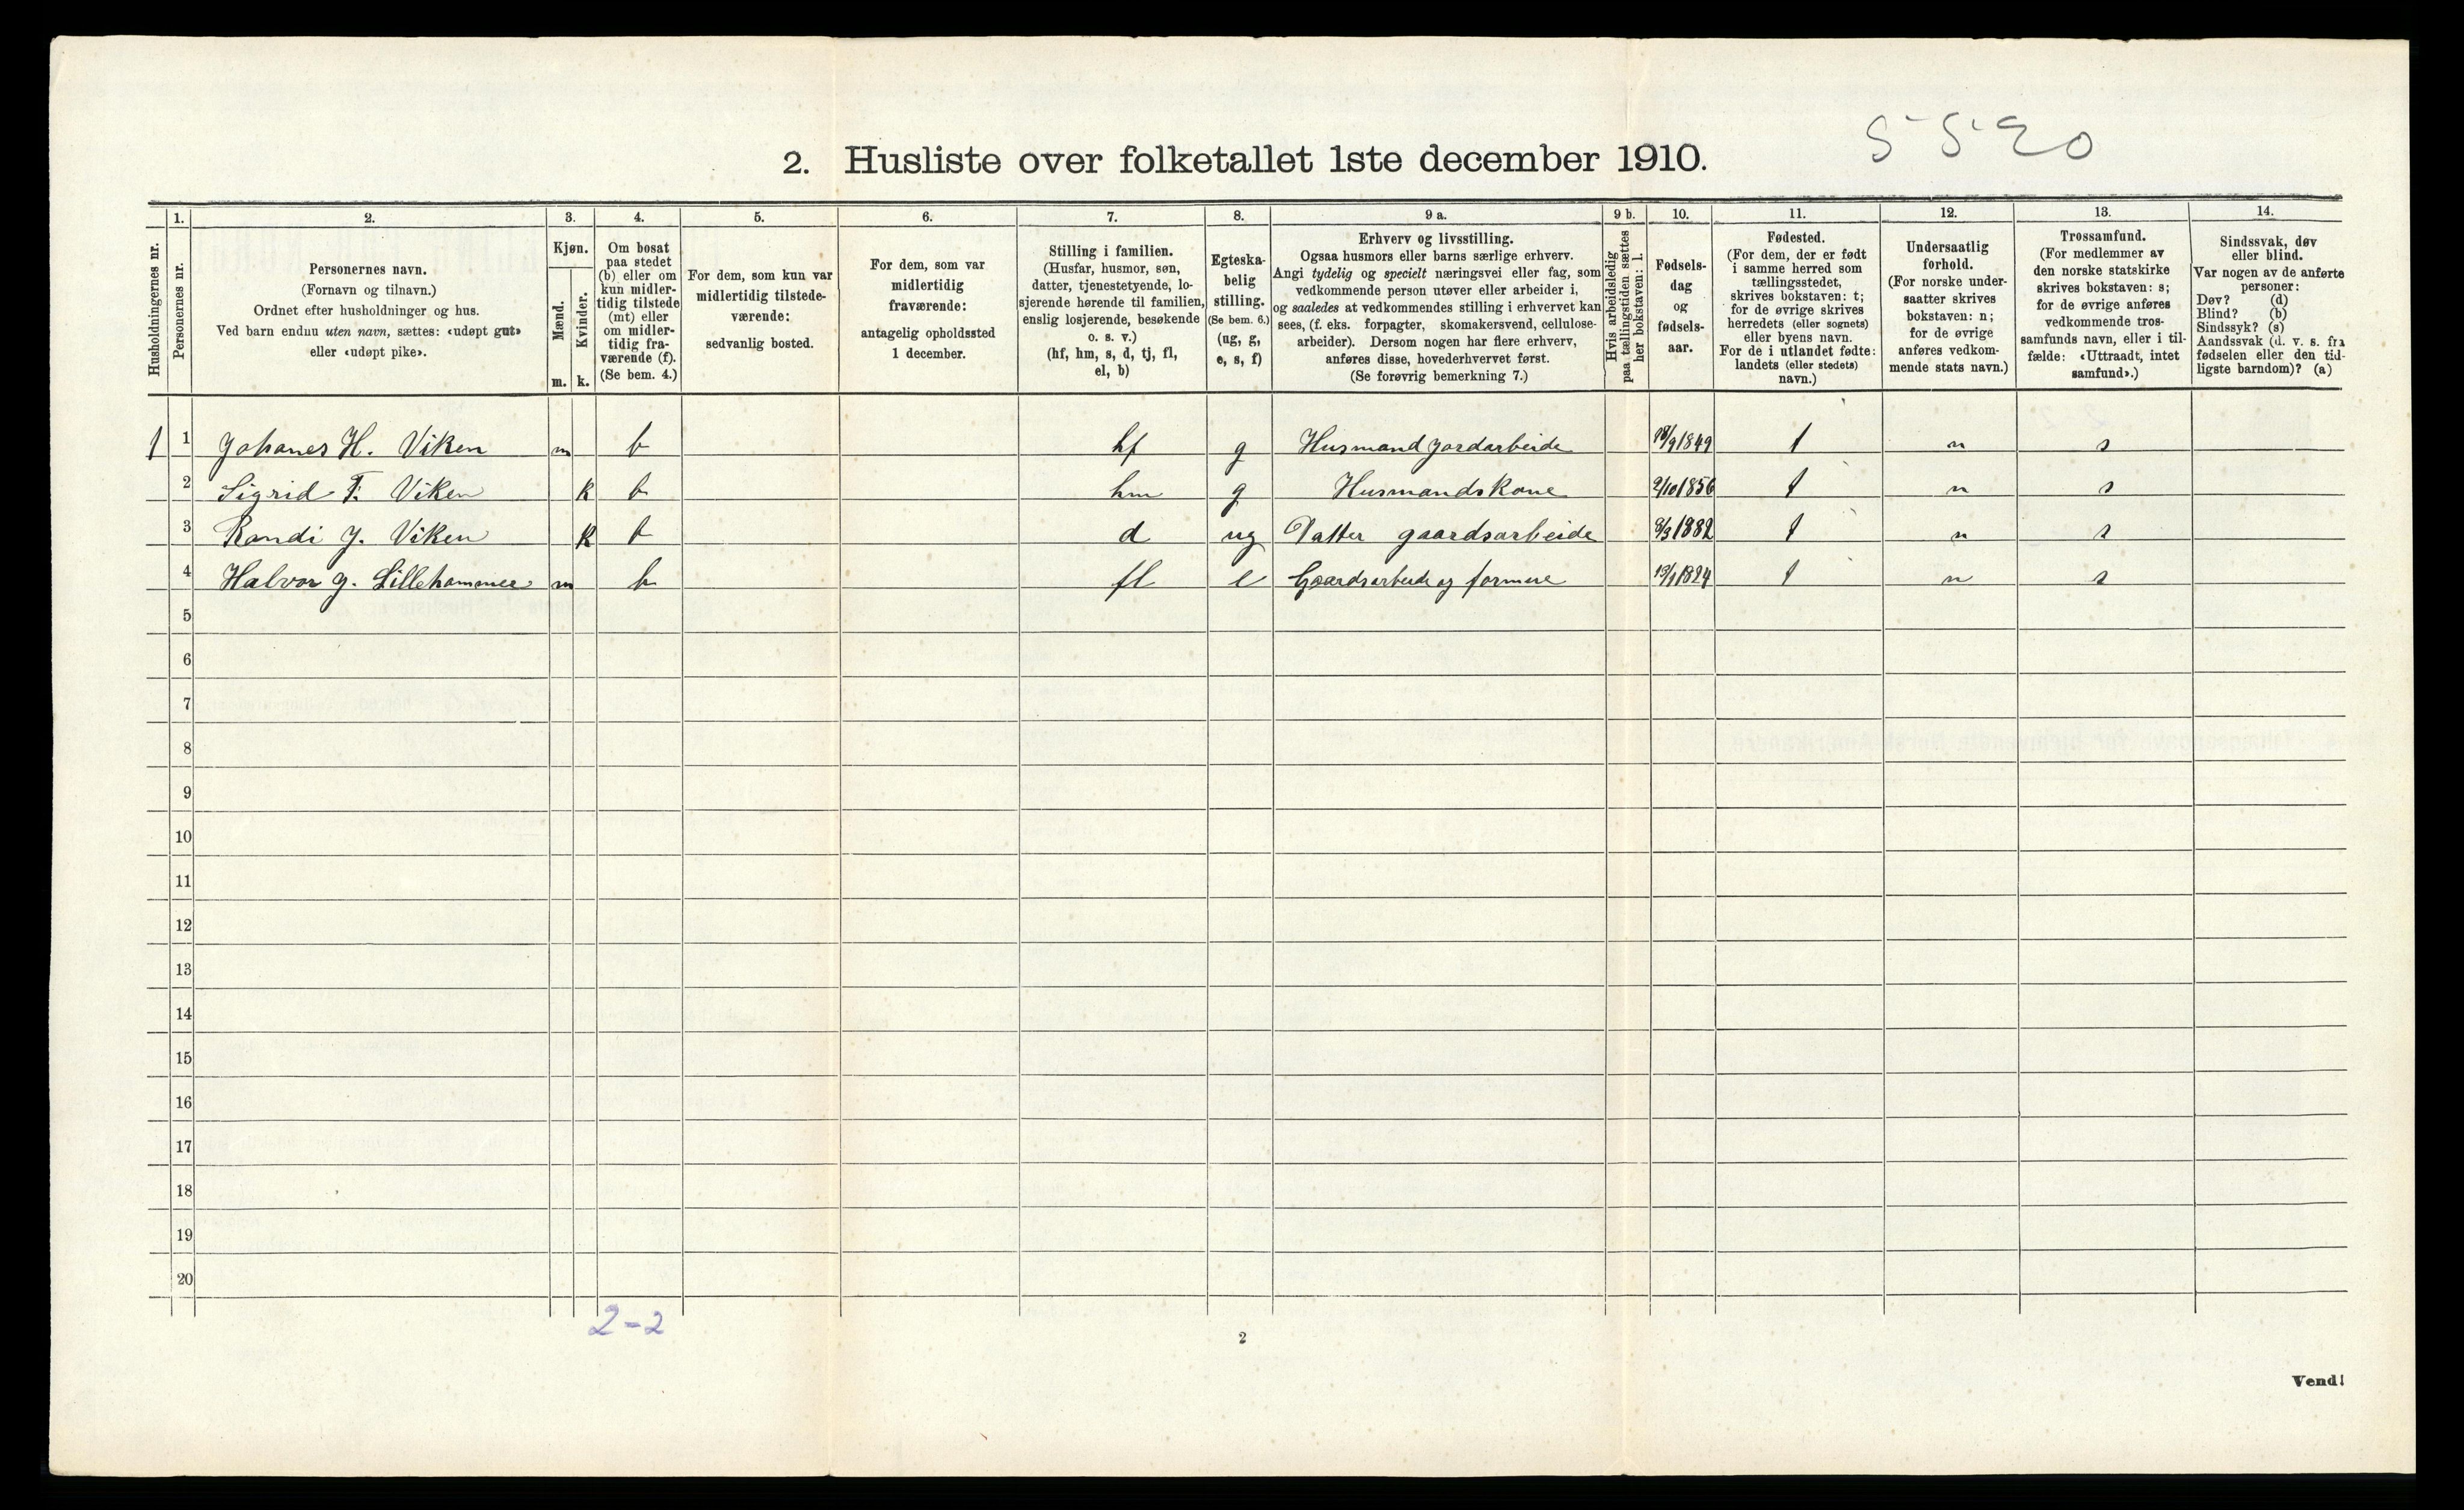 5520
2. Husliste over folketallet 1ste december 1910.
Husholdningernes nr.
1.
Personernes nr.
2.
Personernes navn.
(Fornavn og tilnavn.)
Ordnet efter husholdninger og hus.
Ved barn endnu uten navn, sættes: «udøpt gut»
eller «udøpt pike».
3.
Kjøn.
Mænd.
Kvinder.
m. k.
4.
Om bosat
paa stedet
(b) eller om
kun midler-
tidig tilstede
(mt) eller
om midler-
tidig fra-
værende (f).
(Se bem. 4.)
5.
For dem, som kun var
midlertidig tilstede-
værende:
sedvanlig bosted.
6.
For dem, som var
midlertidig
fraværende:
antagelig opholdssted
1 december.
7.
Stilling i familien.
(Husfar, husmor, søn,
datter, tjenestetyende, lo-
sjerende hørende til familien,
enslig losjerende, besøkende
o. s. v.)
(hf, hm, s, d, tj, fl,
el, b)
8.
Egteska-
belig
stilling.
(Se bem. 6.)
(ug, g,
e, s, f)
9 a.
Erhverv og livsstilling.
Ogsaa husmors eller barns særlige erhverv.
Angi tydelig og specielt næringsvei eller fag, som
vedkommende person utøver eller arbeider i,
og saaledes at vedkommendes stilling i erhvervet kan
sees, (f. eks. forpagter, skomakersvend, cellulose-
arbeider). Dersom nogen har flere erhverv,
anføres disse, hovederhvervet først.
(Se forøvrig bemerkning 7.)
9 b.
Hvis arbeidsledig
paa tællingstiden sættes
her bokstaven: l.
10.
Fødsels-
dag
og
fødsels-
aar.
11.
Fødested.
(For dem, der er født
i samme herred som
tællingsstedet,
skrives bokstaven: t;
for de øvrige skrives
herredets (eller sognets)
eller byens navn.
For de i utlandet fødte:
landets (eller stedets)
navn.)
12.
Undersaatlig
forhold.
(For norske under-
saatter skrives
bokstaven: n;
for de øvrige
anføres vedkom-
mende stats navn.)
13.
Trossamfund.
(For medlemmer av
den norske statskirke
skrives bokstaven: s;
for de øvrige anføres
vedkommende tros-
samfunds navn, eller i til-
fælde: «Uttraadt, intet
samfund».)
14.
Sindssvak, døv
eller blind.
Var nogen av de anførte
personer:
Døv? (d)
Blind? (b)
Sindssyk? (s)
Aandssvak (d. v. s. fra
fødselen eller den tid-
ligste barndom)? (a)
1 1 Johanes H. Viken m b hf g Husmand jordarbeide 18/9 1849 t n s
2 Sigrid T. Viken k b hm g Husmandskone 2/10 1856 t n s
3 Randi J. Viken k b d ug Datter gaardsarbeide 8/3 1882 t n s
4 Halvor J. Lillehammer m b fl e Gaardsarbeide og 13/1 1824 t n s
5
6
7
8
9
10
11
12
13
14
15
16
17
18
19
20
2-2
2
Vend!